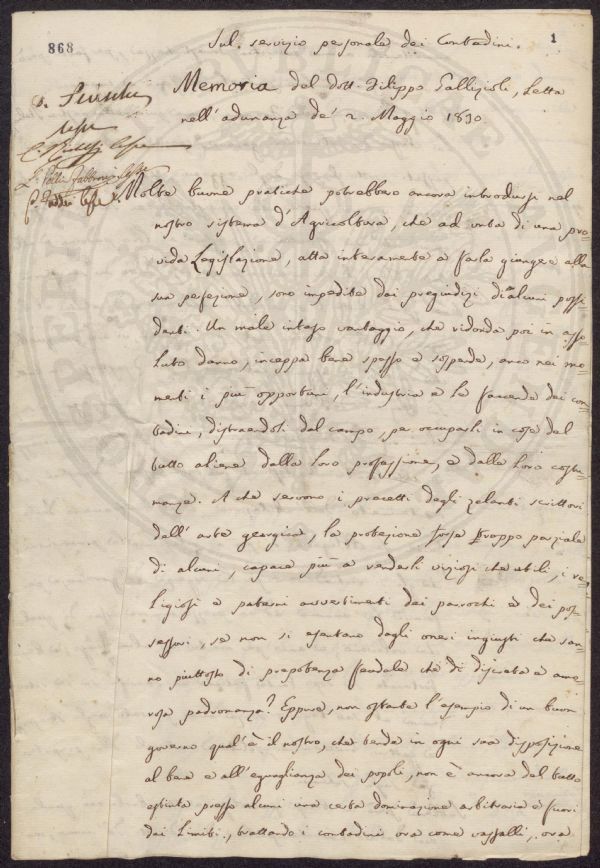 868
1
Sul servizio personale dei Contadini.
Memoria del dott. Filippo Gallizioli, Letta
nell'adunanza de' 2. Maggio 1830
Molte buone pratiche potrebbero ancora introdursi nel
nostro sistema d'Agricoltura, che ad onta di una pro-
vida Legislazione, atta interamente a farla giungere alla
sua perfezione, sono impedite dai pregiudizi di alcuni possi-
denti. Un male inteso vantaggio, che ridonda poi in asso-
luto danno, inceppa bene spesso e sospende, anco nei mo-
menti i più opportuni, l'industria e le faccende dei con-
tadini, distraendoli dal campo, per occuparli in cose del
tutto aliene dalla loro professione, e dalla loro costu-
manza. A che servono i precetti degli zelanti scrittori
dell'arte georgica, la protezione forse troppo parziale
di alcuni, capace più a renderli viziosi che utili, i re-
ligiosi e paterni avvertimenti dei parrochi e dei pos-
sessori, se non si esentano dagli oneri ingiusti che san-
no piuttosto di prepotenza feudale che di discreta e amo-
rosa padronanza? Eppure, non ostante l'esempio di un buon
governo qual'è il nostro, che tende in ogni sua disposizione
al bene e all'eguaglianza dei popoli, non è ancora del tutto
estinta presso alcuni una certa dominazione arbitraria e fuori
dei limiti, trattando i contadini ora come vassalli, ora